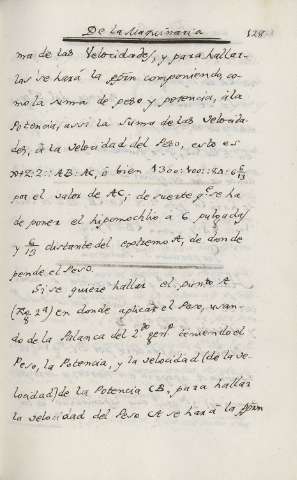 De la Maquinaria 129
ma de las Velocidades, y para hallar-
las se hará la pōrn componiendo, co-
mo la suma de peso y potencia, à la
Potencia, assi la suma de las velocida-
des, à la velocidad del Peso, esto es
:: AB: AC, ò bien 1300: 100::
por el valor de AC; de suerte qe se ha
de poner el hipomochlio à 6 pulgadas
y 6/13 distante del extremo A, de donde
pende el Peso.
Si se quiere hallar el punto A
en donde aplicar el Peso, usan-
do de la Palanca del 2º genº teniendo el
Peso, la Potencia, y la velocidad (de la ve-
locidad) de la Potencia CB, para hallar
la velocidad del Peso CA se hará la pōrn